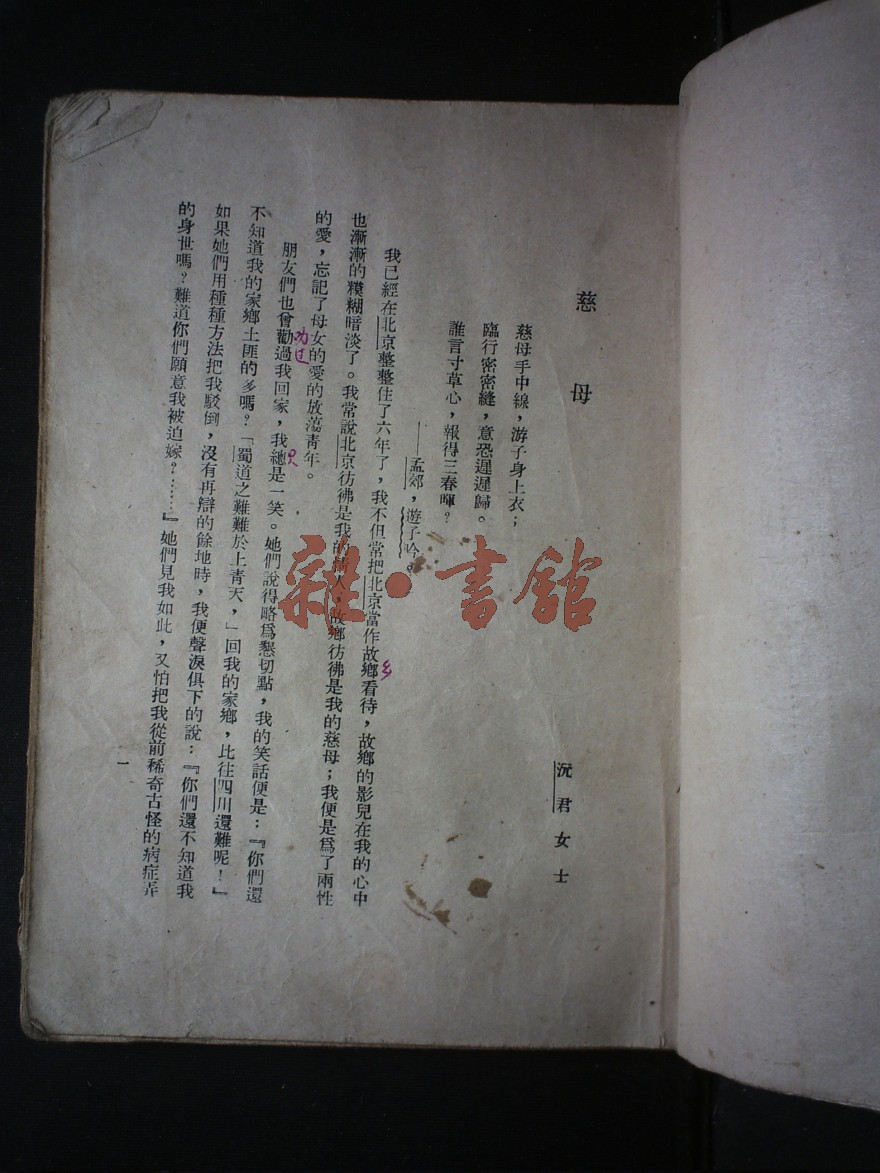 慈母
沅君女士
慈母手中線，游子身上衣；
臨行密密縫，意恐遲遲歸。
誰言寸草心，報得三春暉？
——孟郊，遊子吟。
我已經在北京整整住了六年了，我不但常把北京當作故鄉看待，故鄉的影兒在我的心中
也漸漸的糢糊暗淡了。我常說北京彷彿是我的情人，故鄉彷彿是我的慈母；我便是爲了兩性
的愛，忘記了母女的愛的放蕩青年。
朋友們也曾勸過我回家，我總是一笑。她們說得略爲懇切點，我的笑話便是：『你們還
不知道我的家鄉土匪的多嗎？「蜀道之難難於上青天，」回我的家鄉，比往四川還難呢！』
如果她們用種種方法把我駁倒，沒有再辯的餘地時，我便聲淚俱下的說：『你們還不知道我
的身世嗎？難道你們願意我被迫嫁？……』她們見我如此，又怕把我從前稀奇古怪的病症弄
一
乡
只
劝过
雜·書館